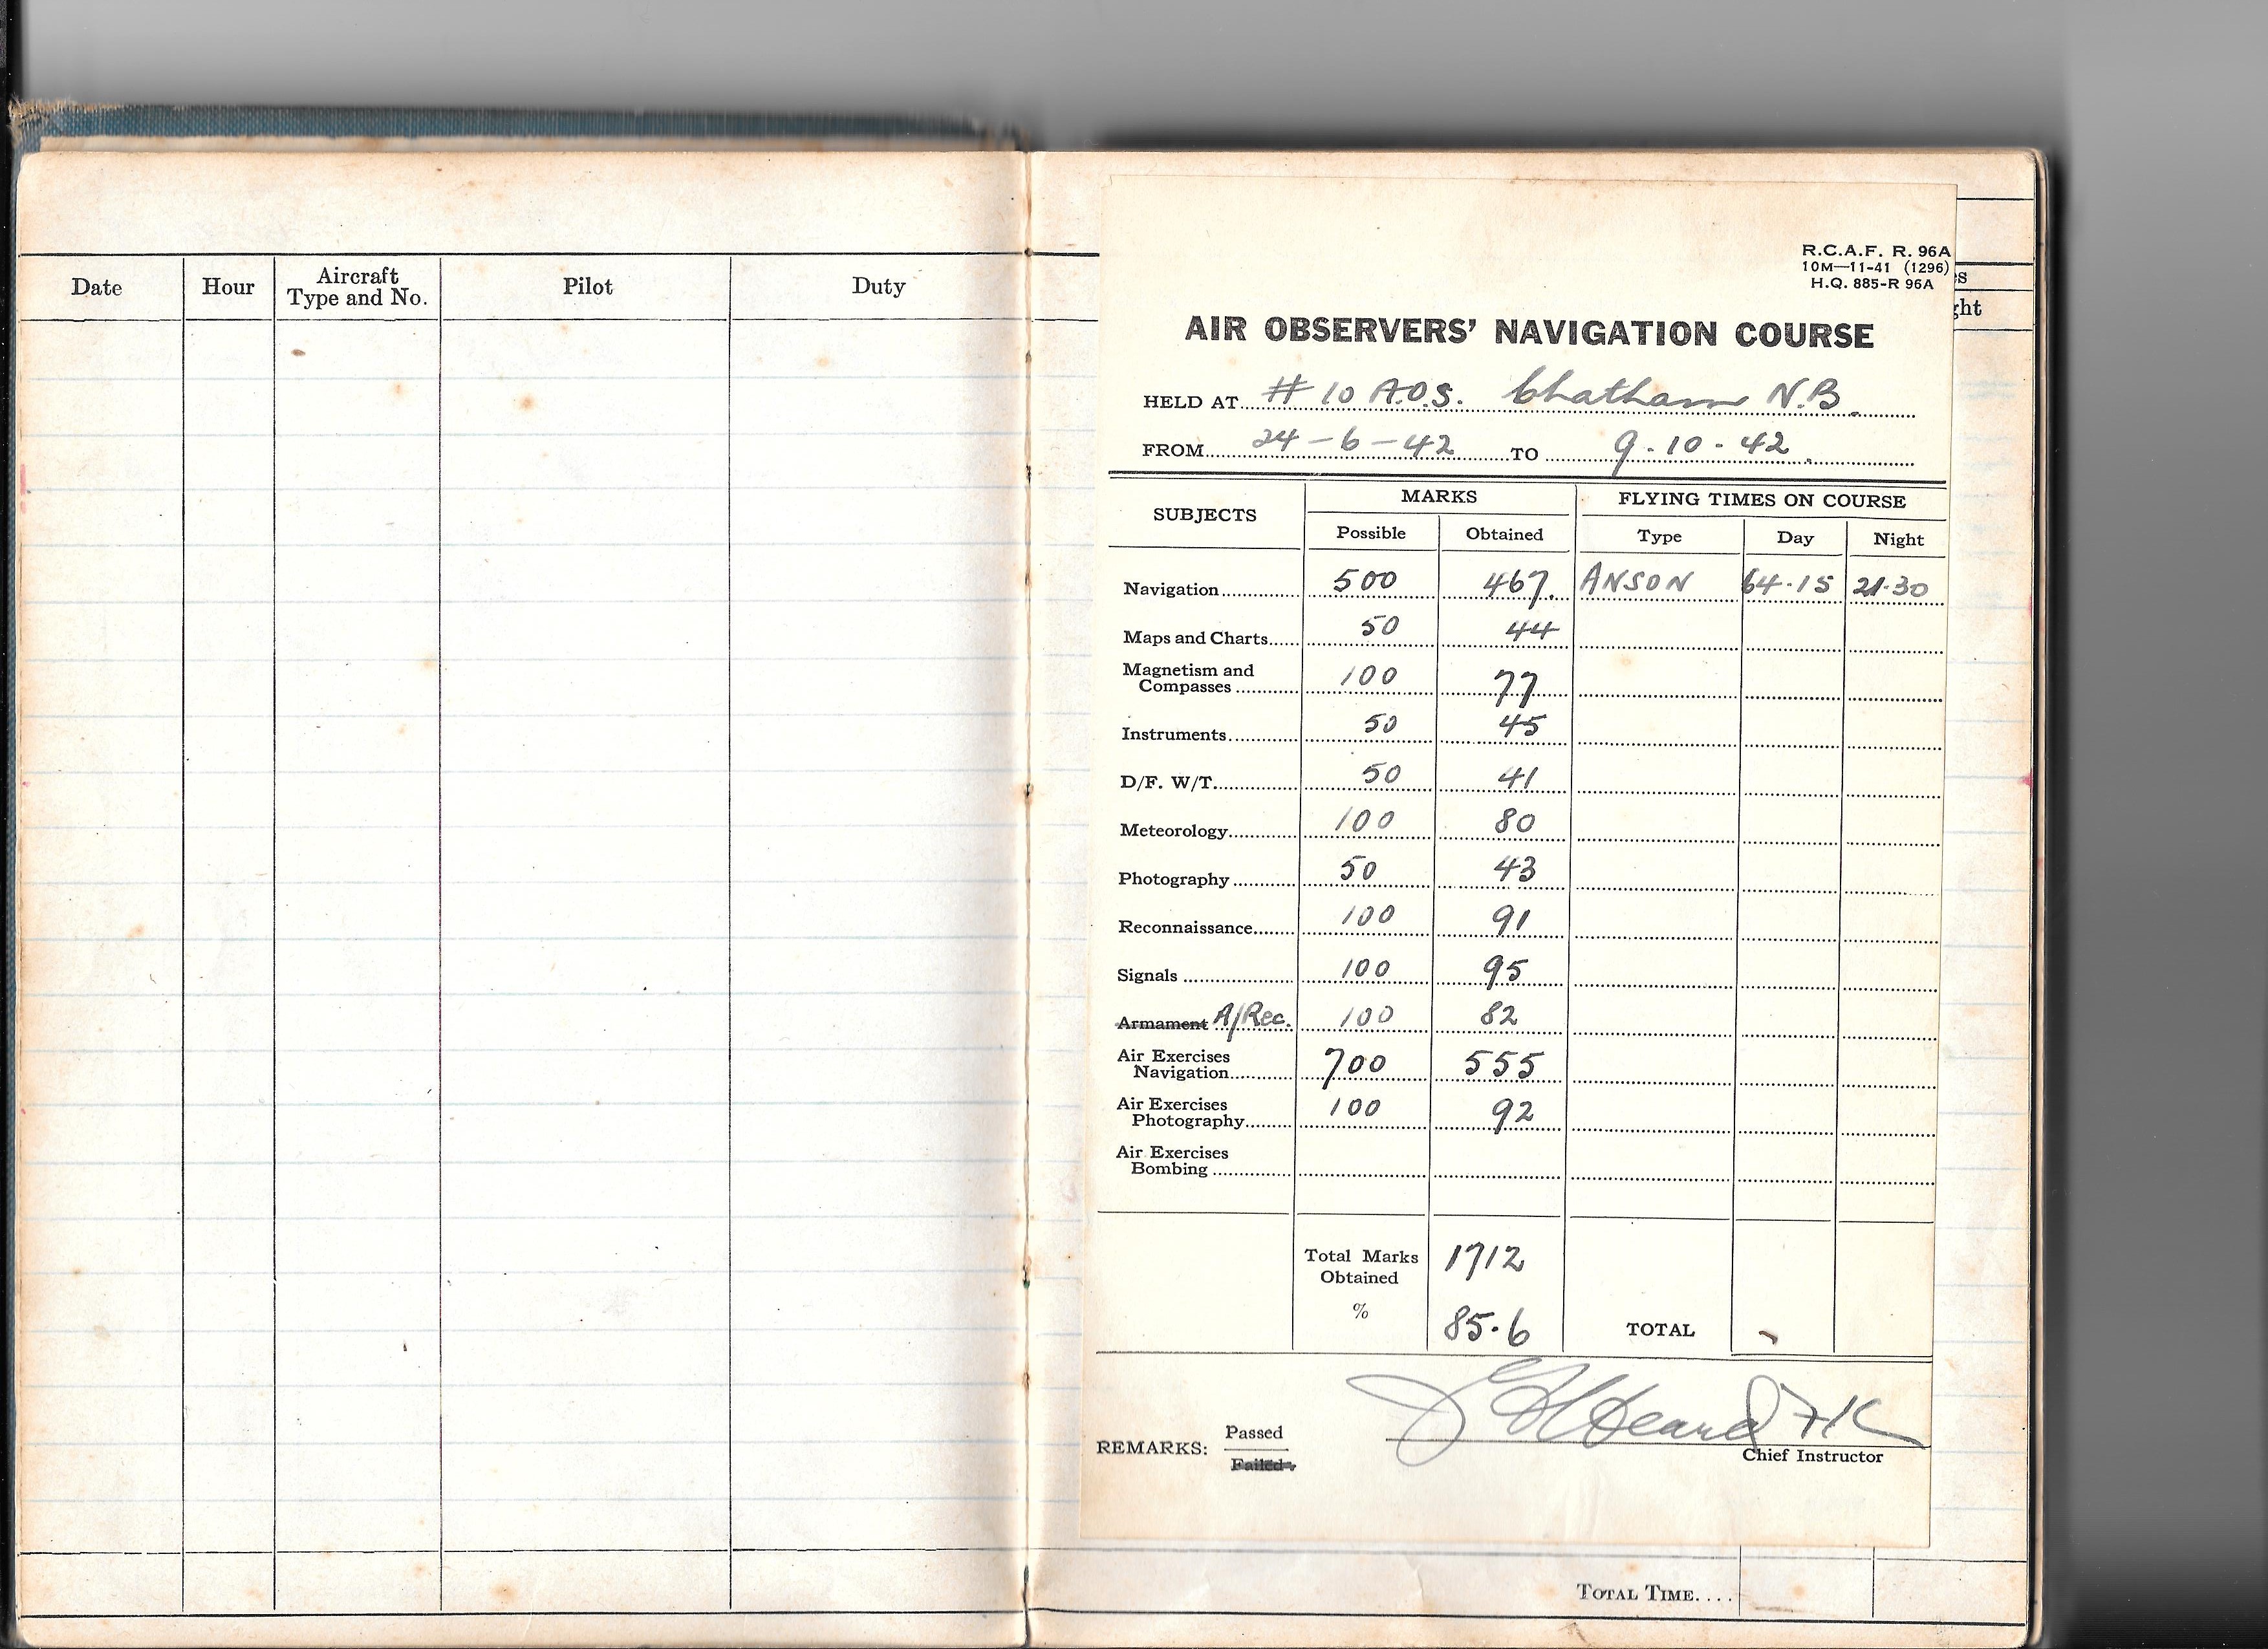 Date Hour Aircraft Type and No. Pilot Duty
R.C.A.F. R. 96A
10M—11-41 (1296)
H.Q. 885-R 96A
s
ght
AIR OBSERVERS' NAVIGATION COURSE
HELD AT # 10 A.O.S. Chatham N.B.
FROM 24-6-42 TO 9-10-42.
SUBJECTS MARKS FLYING TIMES ON COURSE
Possible Obtained Type Day Night
Navigation 500 467. ANSON 64-15 21-30
Maps and Charts 50 44
Magnetism and
Compasses 100 77
Instruments 50 45
D/F. W/T. 50 41
Meteorology 100 80
Photography 50 43
Reconnaissance 100 91
Signals 100 95
Armament A/Rec. 100 82
Air Exercises
Navigation 700 555
Air Exercises
Photography 100 92
Air Exercises
Bombing
Total Marks
Obtained 1712
% 85.6 TOTAL
REMARKS: Passed
Failed
Chief Instructor
TOTAL TIME....